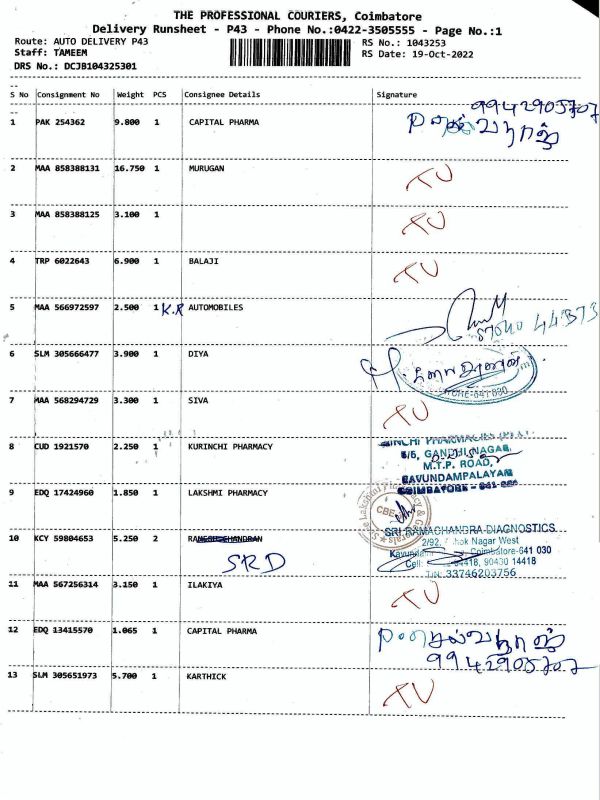 THE PROFESSIONAL COURIERS, Coimbatore
Delivery Runsheet - P43 - Phone No.:0422-3505555 - Page No.:1
Route: AUTO DELIVERY P43 RS No.: 1043253
Staff: TAMEEM RS Date: 19-Oct-2022
DRS No.: DCJB104325301
S No Consignment No Weight PCS Consignee Details Signature
9942905707
1 PAK 254362 9.800 1 CAPITAL PHARMA
2 MAA 858388131 16.750 1 MURUGAN TU
3 MAA 858388125 3.100 1 TU
4 TRP 6022643 6.900 1 BALAJI TU
5 MAA 566972597 2.500 1 K.R AUTOMOBILES
6 SLM 305666477 3.900 1 DIYA
7 MAA 568294729 3.300 1 SIVA TU
8 CUD 1921570 2.250 1 KURINCHI PHARMACY
5/5, GANDHI NAGAR,
M.T.P. ROAD,
KAVUNDAMPALAYAM
COIMBATORE - 641
9 EDQ 17424960 1.850 1 LAKSHMI PHARMACY
CBE
10 KCY 59804653 5.250 2 RAMESHCHANDRAN
SRD
SRI RAMACHANDRA DIAGNOSTICS
2/92, Ashok Nagar West
Coimbatore-641 030
Cell: 94418, 90430 14418
33746203756
11 MAA 567256314 3.150 1 ILAKIYA TU
12 EDQ 13415570 1.065 1 CAPITAL PHARMA
9942905707
13 SLM 305651973 5.700 1 KARTHICK TU